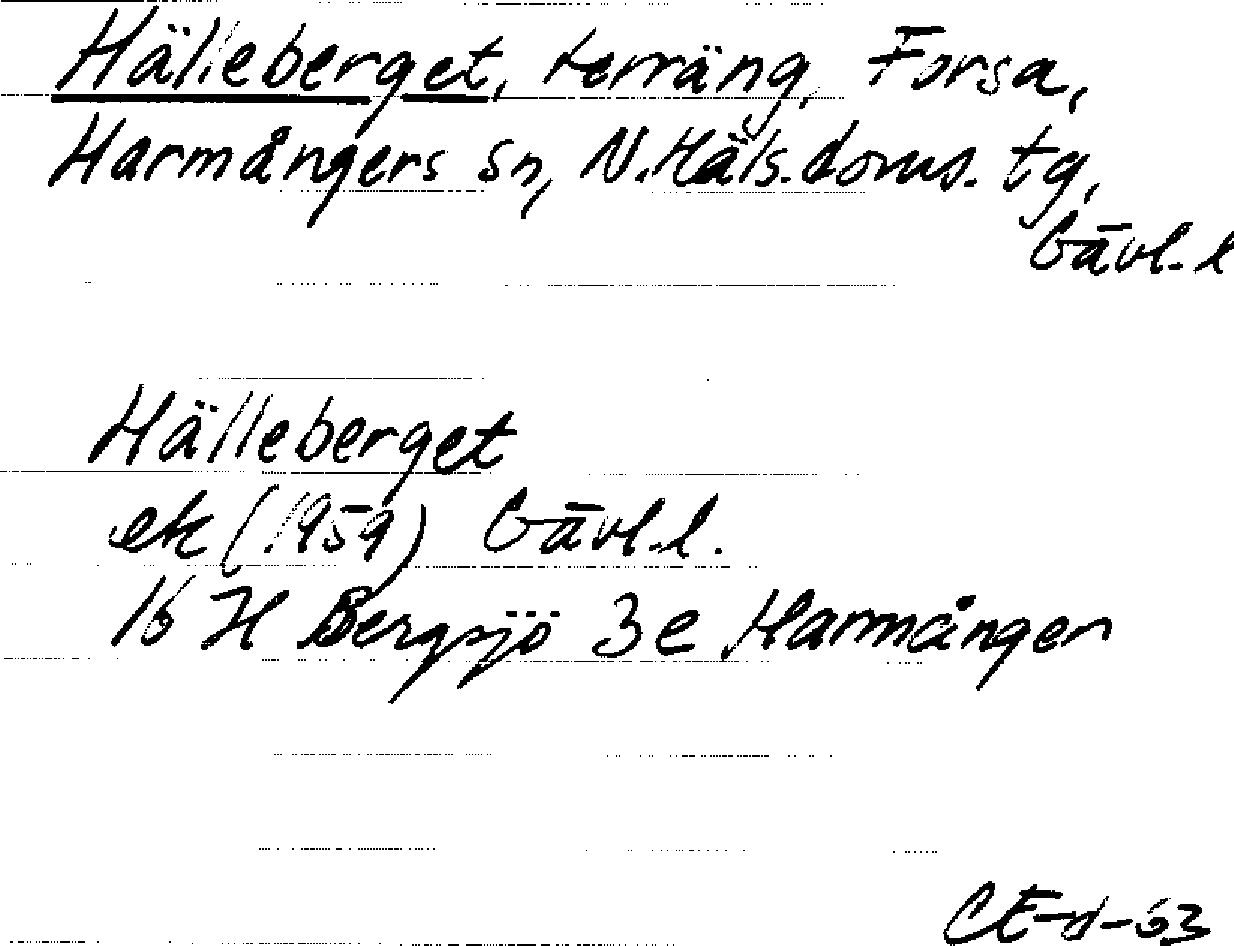 Hälleberget, terräng, Forsa,
Harmångers sn, N. Häls. doms. tg,
Gävl. l
Hälleberget
ek (1959) Gävl. l.
16 H Bergsjö 3e Harmånger